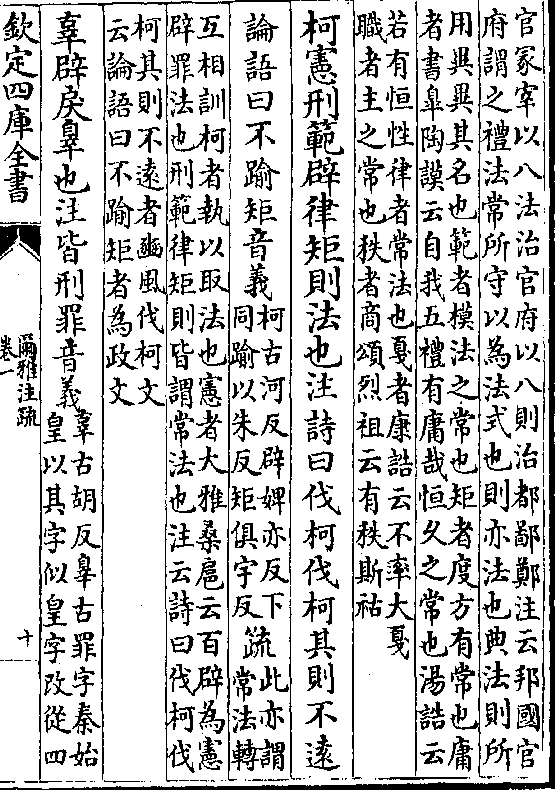 官冢宰以八法治官府以八則治都鄙鄭注云邦國官
府謂之禮法常所守以為法式也則亦法也典法則所
用異異其名也範者模法之常也矩者度方有常也庸
者書臯陶謨云自我五禮有庸哉恒久之常也湯誥云
若有恒性律者常法也戛者康誥云不率大戛
職者主之常也秩者商頌烈祖云有秩斯祜
柯憲刑範辟律矩則法也注詩曰伐柯伐柯其則不遠
論語曰不踰矩音義柯古河反辟婢亦反下
同踰以朱反矩俱宇反疏此亦謂
常法轉
互相訓柯者執以取法也憲者大雅桑扈云百辟為憲
辟罪法也刑範律矩則皆謂常法也注云詩曰伐柯伐
柯其則不遠者豳風伐柯文
云論語曰不踰矩者為政文
辜辟戾辠也注皆刑罪音義辜古胡反辠古罪字秦始
皇以其字似皇字改從四
欽定四庫全書
爾雅注疏
卷一
十